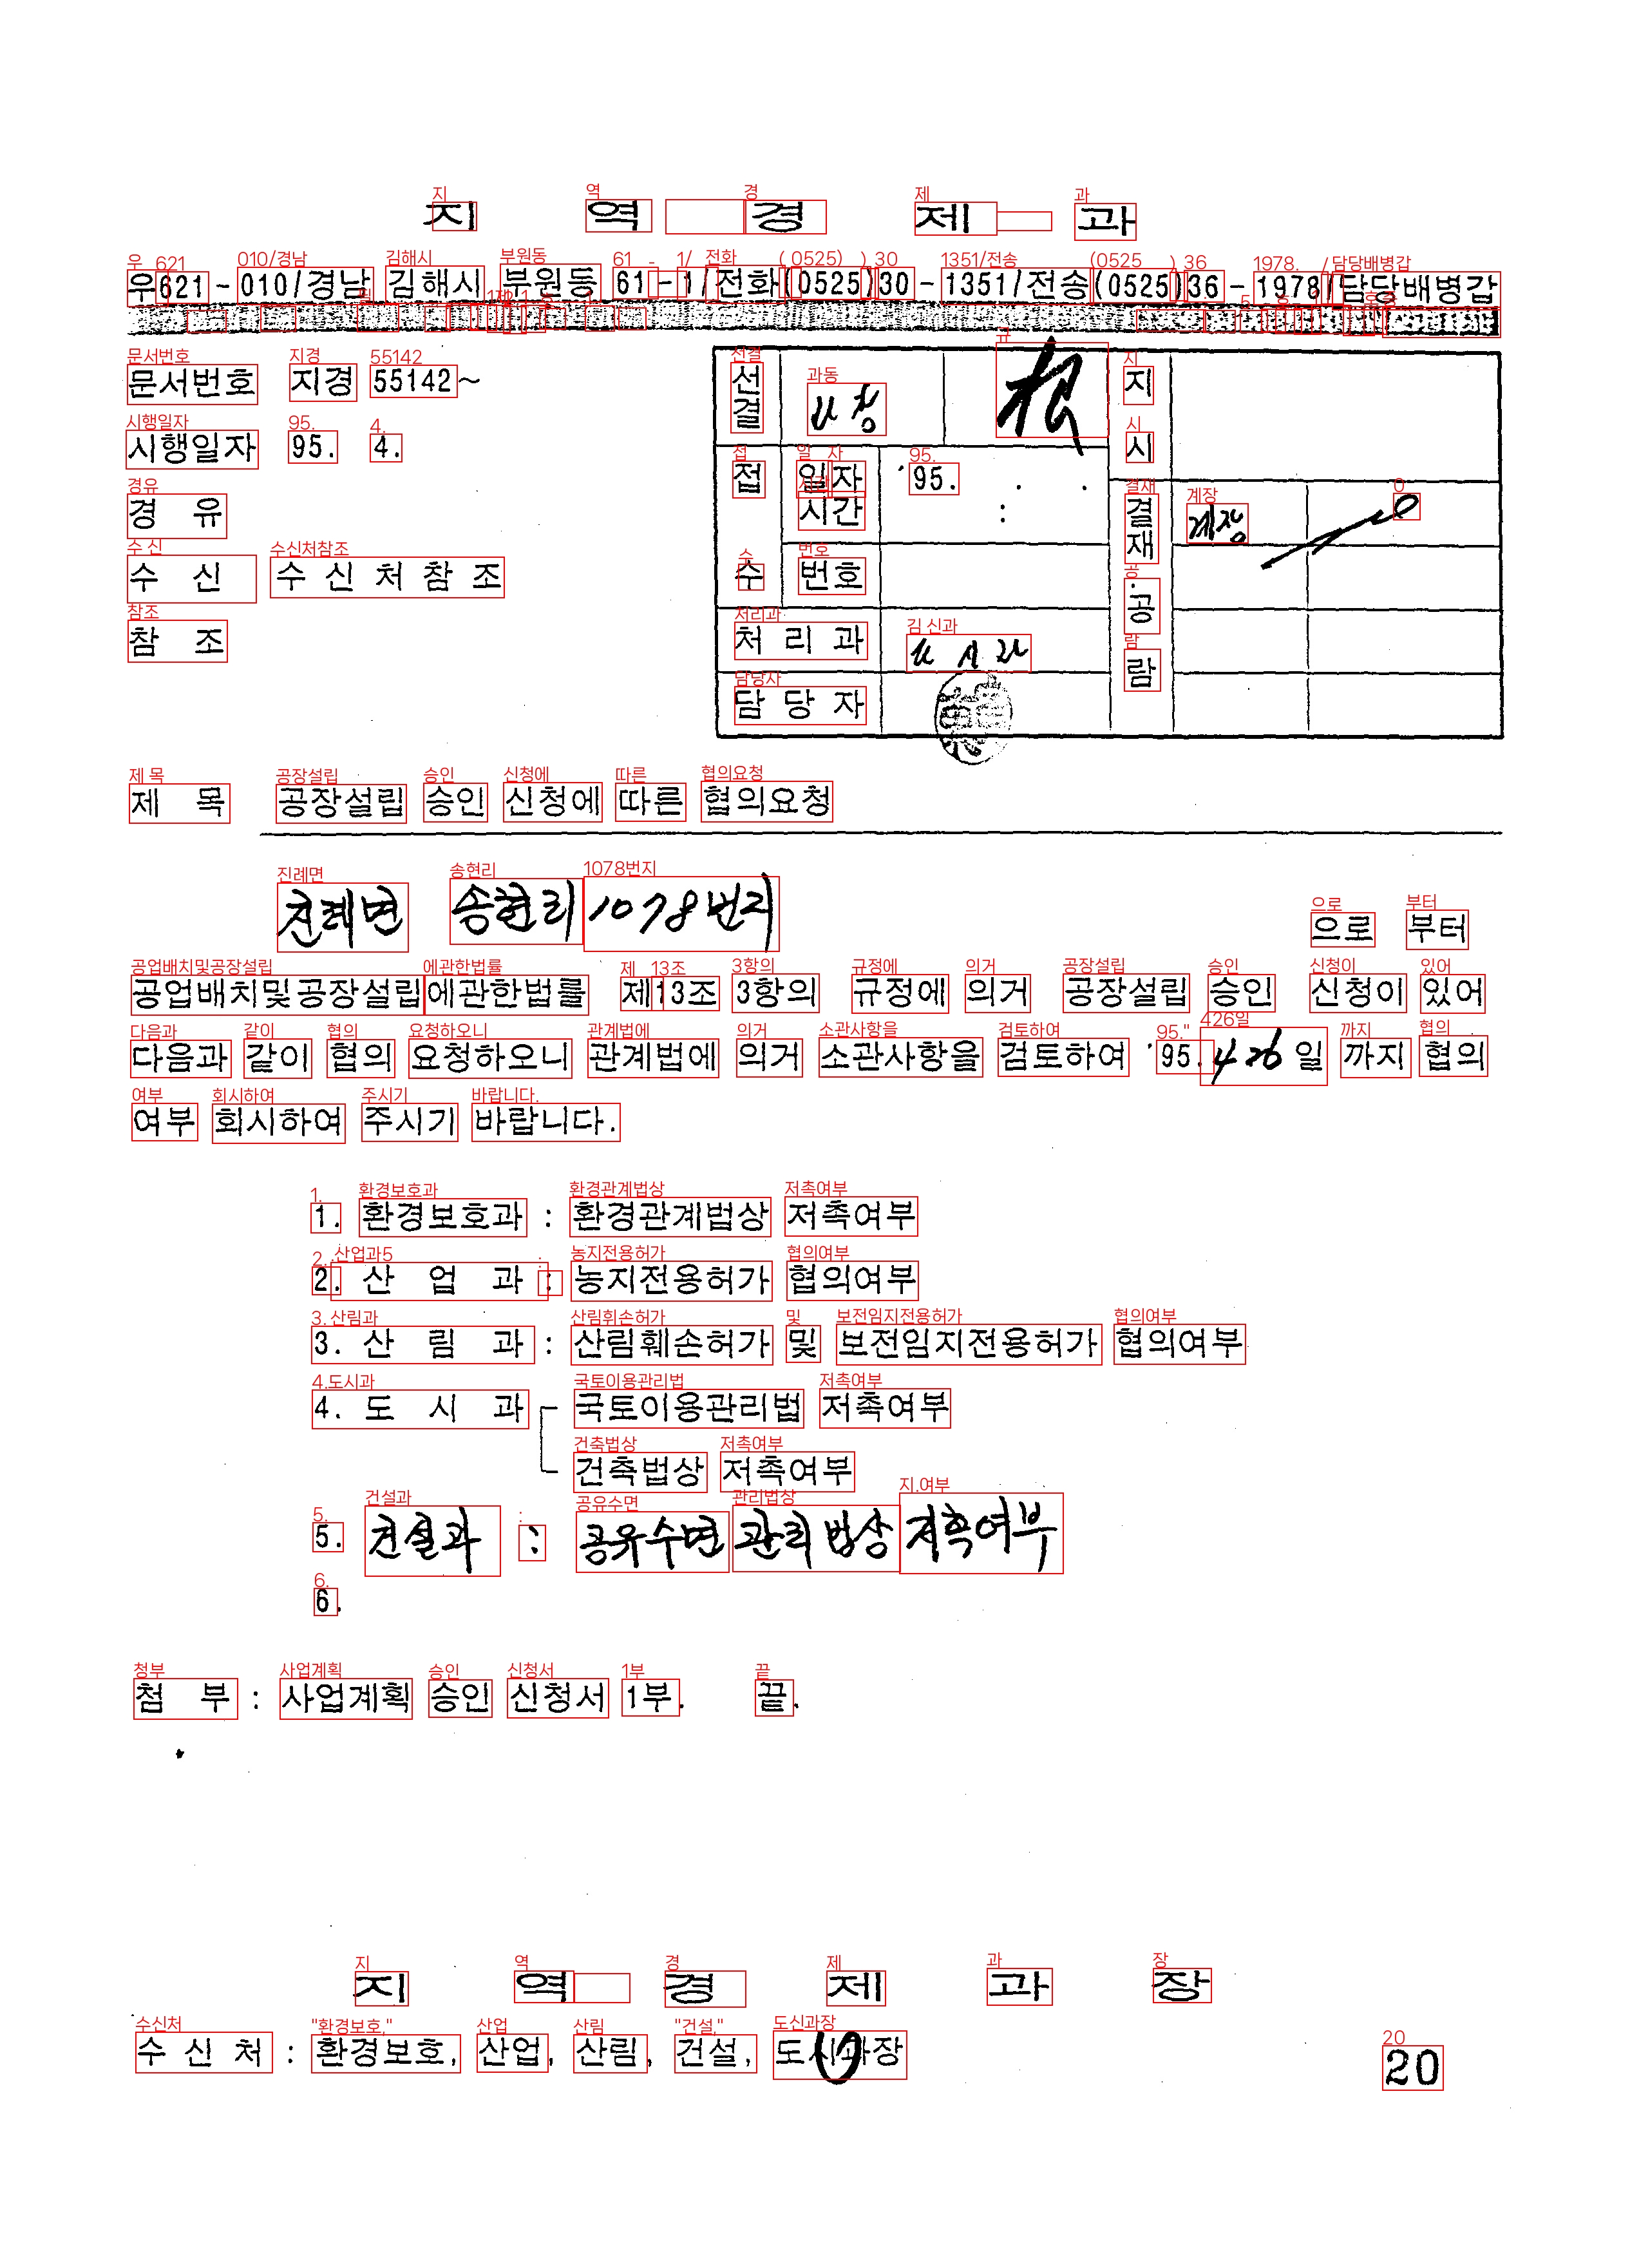 지 역 경 제 과
우621-010/경남 김해시 부원동 61-1/전화(0525)30-1351/전송(0525)36-1978/담당배병갑
문서번호 지경 55142~
시행일자 95. 4.
경 유
수 신 수 신 처 참 조
참 조
선결 지시
접수 일자 '95. . .
시간 :
번호
결재·공람 계장
처 리 과
담 당 자
제 목 공장설립 승인 신청에 따른 협의요청
진례면 송현리 1078번지 으로 부터
공업배치및공장설립에관한법률 제13조 3항의 규정에 의거 공장설립 승인 신청이 있어
다음과 같이 협의 요청하오니 관계법에 의거 소관사항을 검토하여 '95. 4. 26일 까지 협의
여부 회시하여 주시기 바랍니다.
1. 환경보호과 : 환경관계법상 저촉여부
2. 산 업 과 : 농지전용허가 협의여부
3. 산 림 과 : 산림훼손허가 및 보전임지전용허가 협의여부
4. 도 시 과 국토이용관리법 저촉여부
건축법상 저촉여부
5. 건설과 : 공유수면 관리법상 저촉여부
6.
첨 부 : 사업계획 승인 신청서 1부. 끝.
지 역 경 제 과 장
수 신 처 : 환경보호, 산업, 산림, 건설, 도시과장
20